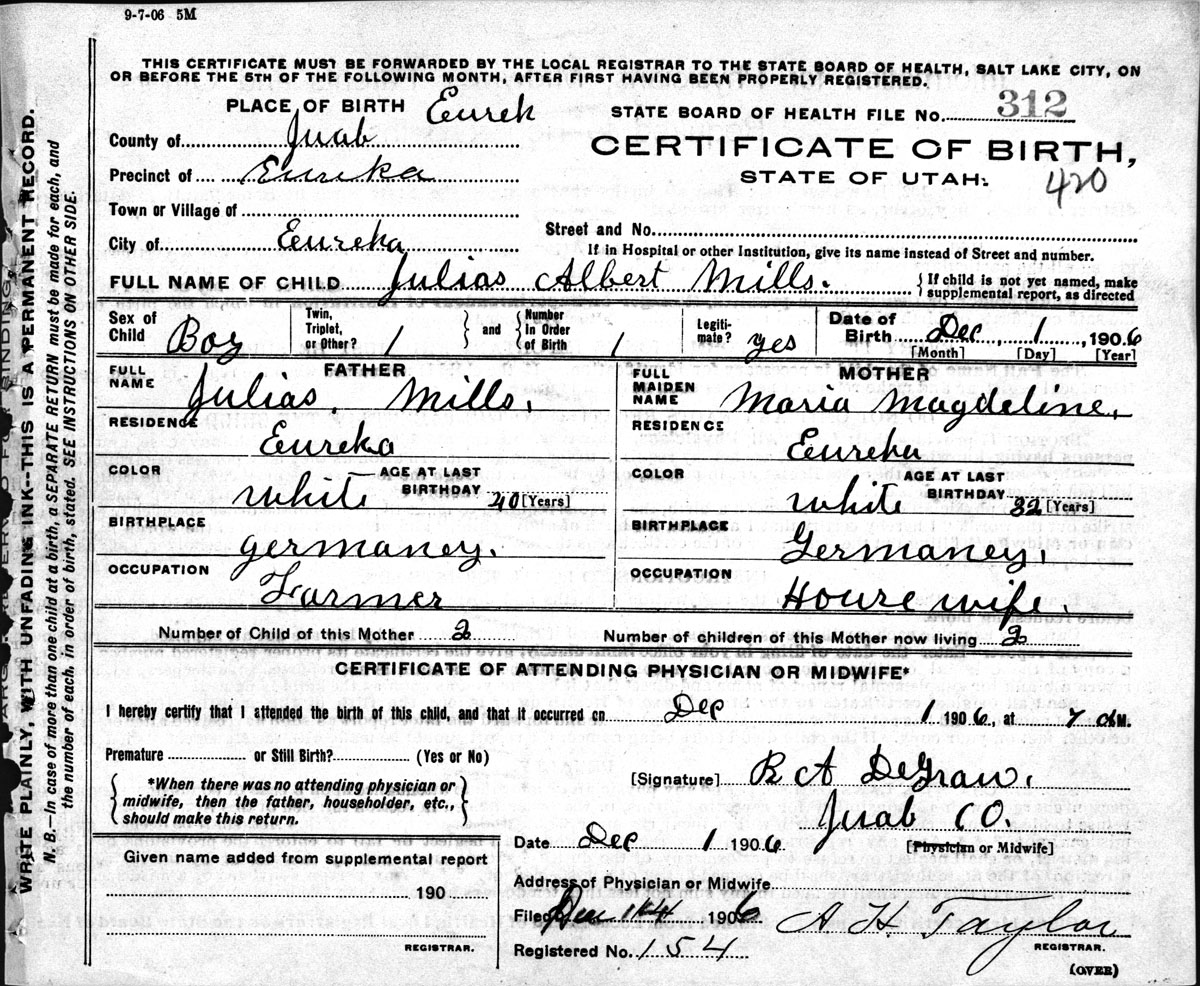 9-7-06 5M
THIS CERTIFICATE MUST BE FORWARDED BY THE LOCAL REGISTRAR TO THE STATE BOARD OF HEALTH, SALT LAKE CITY, ON
OR BEFORE THE 5TH OF THE FOLLOWING MONTH, AFTER FIRST HAVING BEEN PROPERLY REGISTERED.
PLACE OF BIRTH Eurek
STATE BOARD OF HEALTH FILE No. 312
County of Juab
CERTIFICATE OF BIRTH,
STATE OF UTAH.
420
Precinct of Eureka
Town or Village of
Street and No.
City of Eureka
If in Hospital or other Institution, give its name instead of Street and number.
FULL NAME OF CHILD Julias Albert Mills.
If child is not yet named, make
supplemental report, as directed
Sex of Child Boy
Twin, Triplet, or Other? 1
and
Number in Order of Birth 1
Legiti-mate? yes
Date of Birth Dec 1, 1906
[Month] [Day] [Year]
FATHER
FULL NAME Julias. Mills.
RESIDENCE Eureka
COLOR White
AGE AT LAST BIRTHDAY 40 [Years]
BIRTHPLACE germaney.
OCCUPATION Farmer
MOTHER
FULL MAIDEN NAME Maria Magdeline.
RESIDENCE Eureka
COLOR White
AGE AT LAST BIRTHDAY 32 [Years]
BIRTHPLACE Germaney.
OCCUPATION House wife.
Number of Child of this Mother 2
Number of children of this Mother now living 2
CERTIFICATE OF ATTENDING PHYSICIAN OR MIDWIFE*
I hereby certify that I attended the birth of this child, and that it occurred on Dec 1 1906, at 7 M.
Premature or Still Birth? (Yes or No)
*When there was no attending physician or
midwife, then the father, householder, etc.,
should make this return.
[Signature] R A DeGraw.
Juab CO.
Date Dec 1 1906
[Physician or Midwife]
Given name added from supplemental report
190
REGISTRAR.
Address of Physician or Midwife
Filed Dec 1906
A H. Taylor
REGISTRAR.
Registered No. 154
(OVER)
WRITE PLAINLY, WITH UNFADING INK--THIS IS A PERMANENT RECORD.
N. B.—In case of more than one child at a birth, a SEPARATE RETURN must be made for each, and
the number of each, in order of birth, stated. SEE INSTRUCTIONS ON OTHER SIDE.